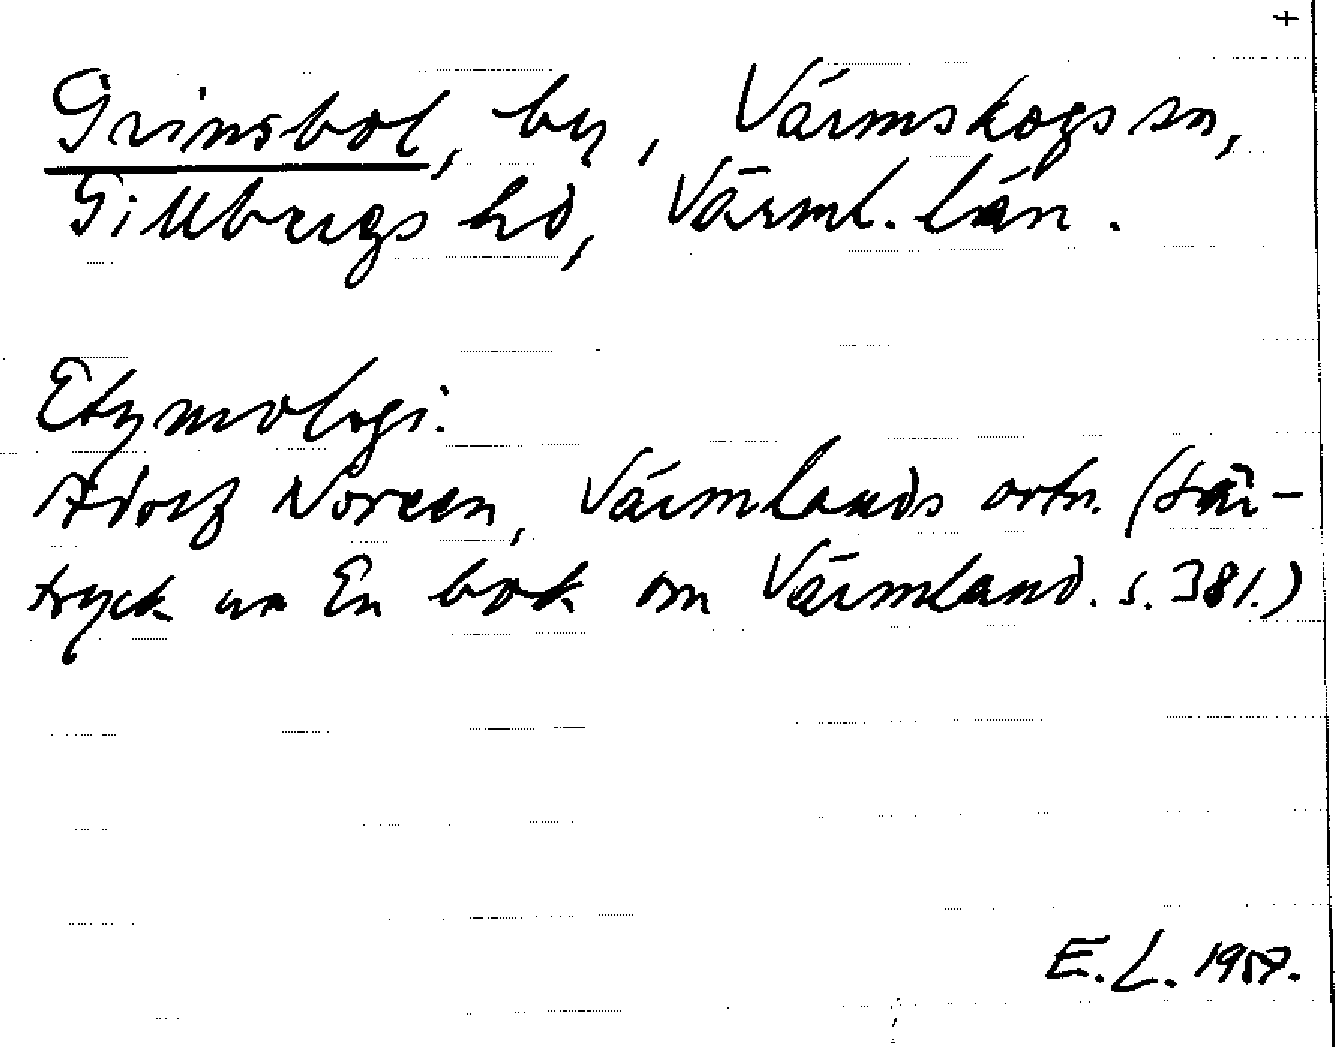 +
Grinsbol, by, Värmskogs sn,
Gillbergs hd, Värml. län.
Etymologi.
Adolf Noreen, Värmlands ortn. (Sär-
tryck ur En bok om Värmland. s. 381.)
E. L. 1957.